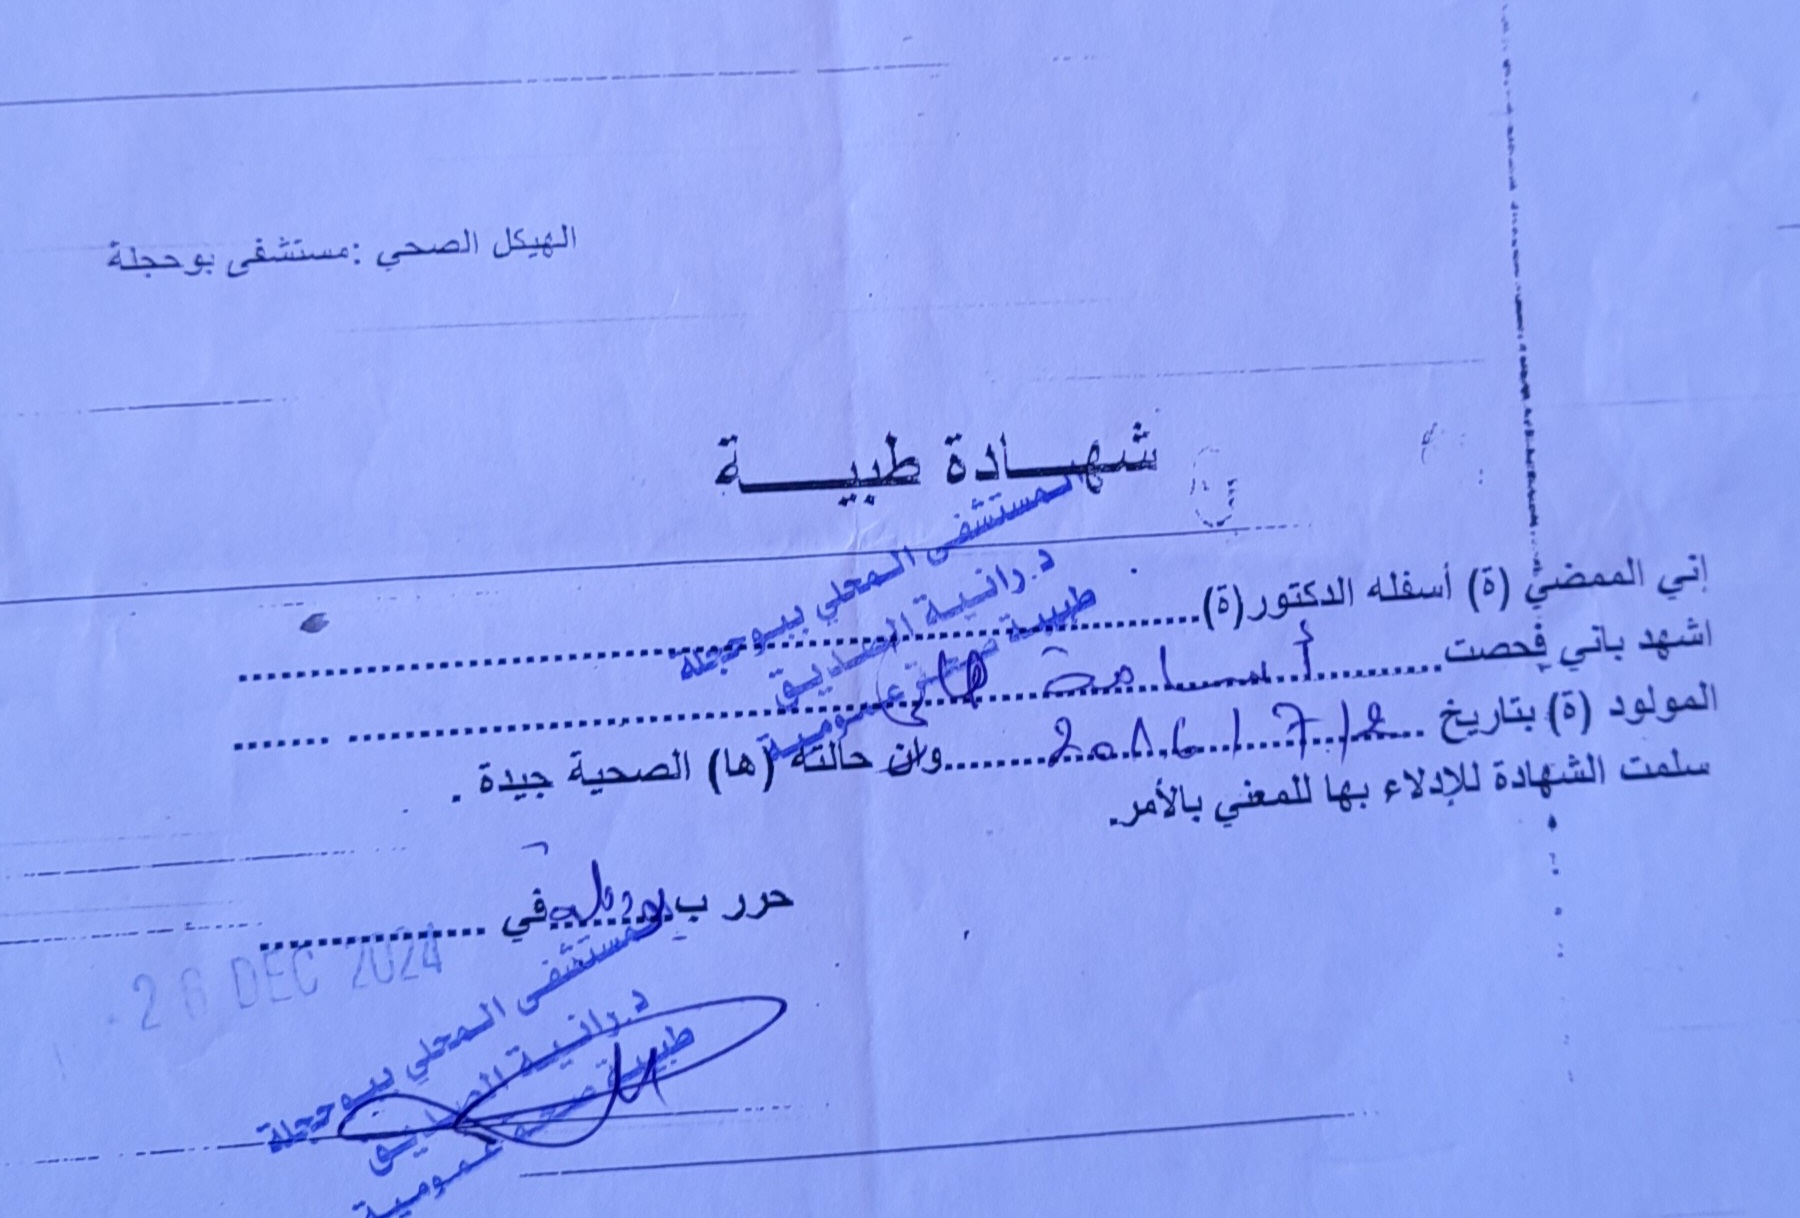 الهيكل الصحي :مستشفى بوحجلة
شهادة طبية
المستشفى المحلي ببوحجلة
د.رانية الصديق
طبيبة صحة عمومية
إني الممضي (ة) أسفله الدكتور(ة)
اشهد باني فحصت أسامة
المولود (ة) بتاريخ وان حالته (ها) الصحية جيدة .
سلمت الشهادة للإدلاء بها للمعني بالأمر.
حرر ب في
DEC 2024
المستشفى المحلي ببوحجلة
د.رانية الصديق
طبيبة صحة عمومية